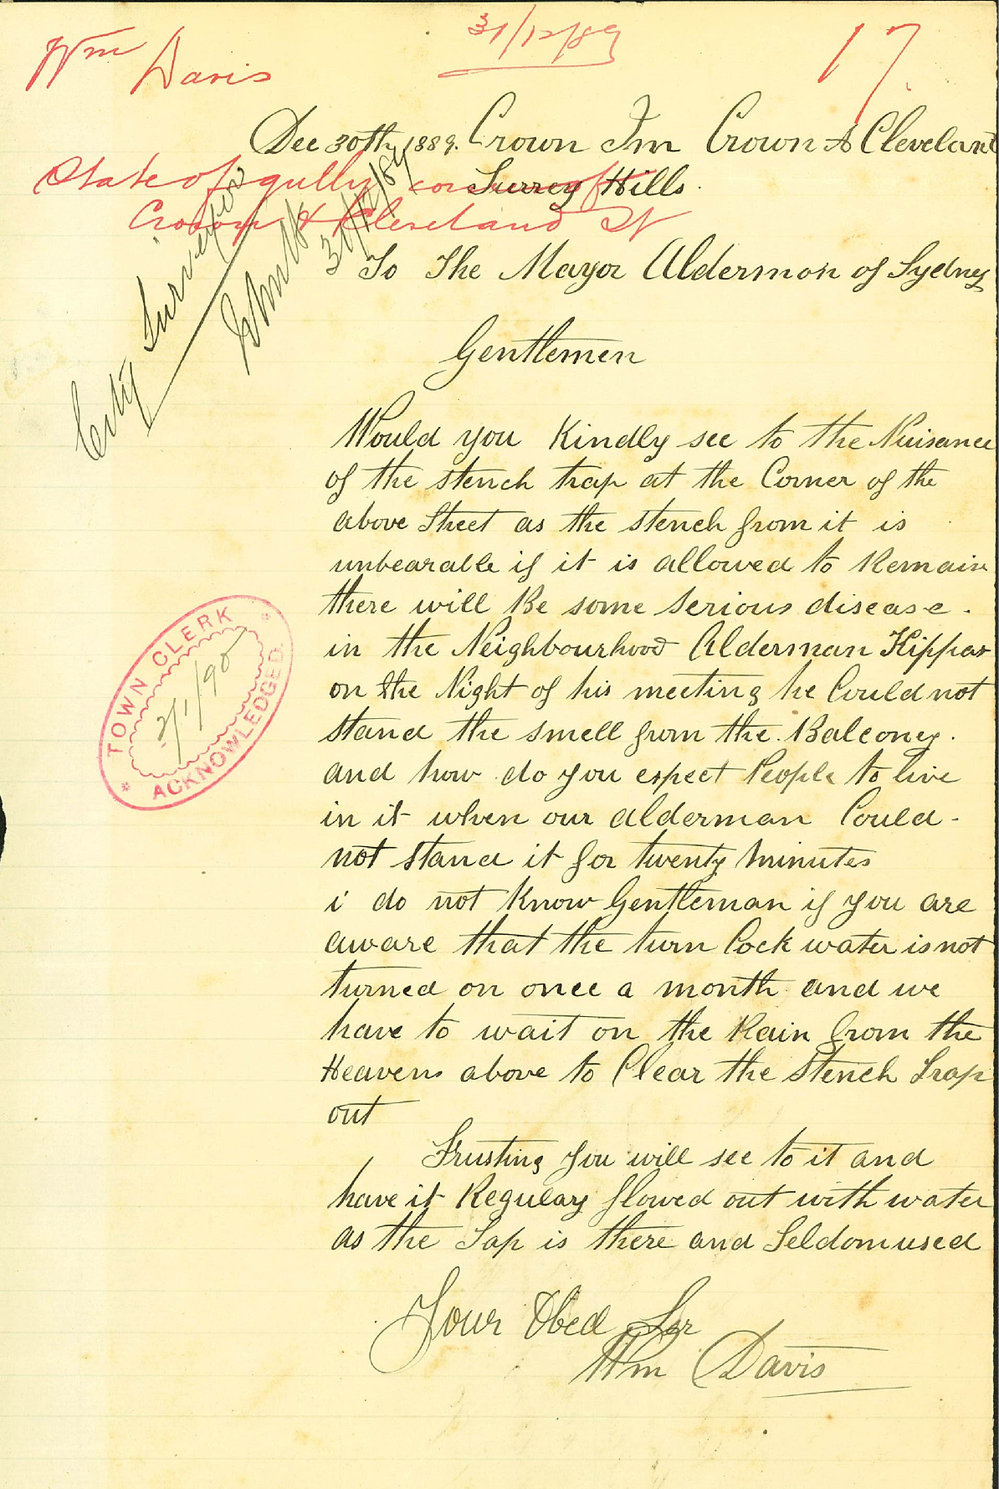 Wm Davis
31/12/89
17
Dec 30th 1889. Crown Inn Crown & Cleveland
Surrey Hills.
State of gully corner of
Crown & Cleveland St
City Surveyor
31/12/89
To The Mayor Aldermon of Sydney
Gentlemen
Would you Kindly see to the Nuisance
of the stench trap at the Corner of the
above Street as the stench from it is
unbearable if it is allowed to Remain
there will Be some serious disease.
in the Neighbourhood Alderman Hippax
on the Night of his meeting he Could not
stand the smell from the Balconey.
and how do you expect People to live
in it when our alderman Could -
not stand it for twenty minutes
i do not Know Gentleman if you are
aware that the turn Cock water is not
turned on once a month and we
have to wait on the Rain from the
Heavens above to Clear the Stench Trap
out
Trusting you will see to it and
have it Regulary flowed out with water
as the Tap is there and Seldom used
Your Obed Ser
Wm Davis
TOWN CLERK
2/1/90
ACKNOWLEDGED.